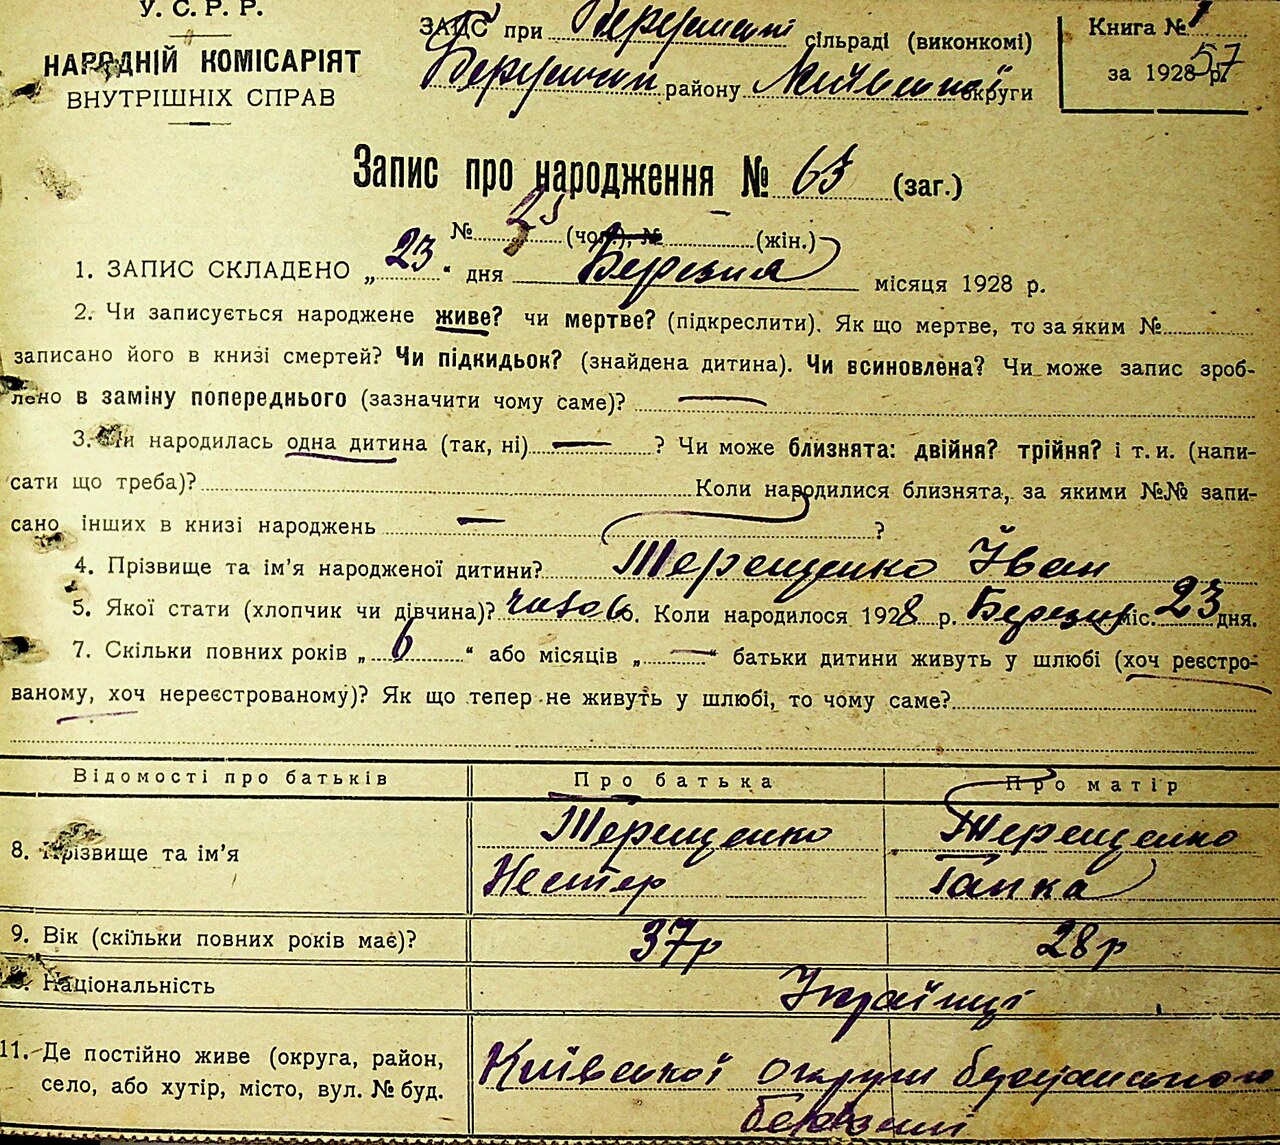 У. С. Р. Р.
НАРОДНІЙ КОМІСАРІЯТ
ВНУТРІШНІХ СПРАВ
ЗАГС при сільраді (виконкомі)
району округи
Книга № 1
за 1928 р. 57
Запис про народження № 63 (заг.)
№ (чол.), № (жін.)
1. ЗАПИС СКЛАДЕНО „ 23 “ дня Березня місяця 1928 р.
2. Чи записується народжене живе? чи мертве? (підкреслити). Як що мертве, то за яким №
записано його в книзі смертей? Чи підкидьок? (знайдена дитина). Чи всиновлена? Чи може запис зроб-
лено в заміну попереднього (зазначити чому саме)? —
3. Чи народилась одна дитина (так, ні) — ? Чи може близнята: двійня? трійня? і т. и. (напи-
сати що треба)? Коли народилися близнята, за якими №№ запи-
сано інших в книзі народжень — ?
4. Прізвище та ім’я народженої дитини? Терещенко Іван
5. Якої стати (хлопчик чи дівчина)? Коли народилося 1928 р. міс. 23 дня.
7. Скільки повних років „ 6 “ або місяців „ — “ батьки дитини живуть у шлюбі (хоч реєстро-
ваному, хоч нереєстрованому)? Як що тепер не живуть у шлюбі, то чому саме?
Відомості про батьків Про батька Про матір
8. Прізвище та ім’я Терещенко Нестер Терещенко Гапка
9. Вік (скільки повних років має)? 37 р 28 р
10. Національність Українці
11. Де постійно живе (округа, район, Київської округи
село, або хутір, місто, вул. № буд.